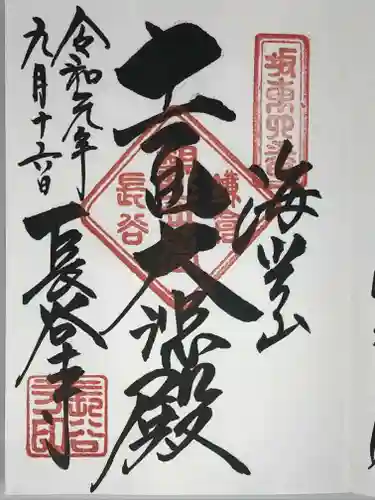 坂東四番
海光山
十一面大悲殿
鎌倉
長谷
長谷寺
長谷寺印
令和元年
九月十六日